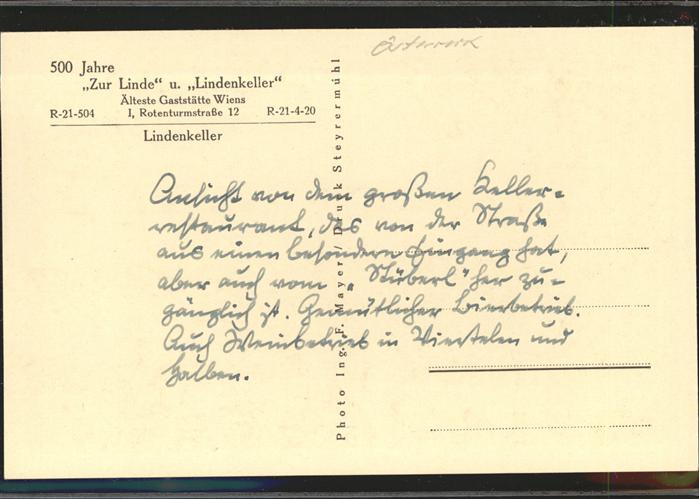 500 Jahre
„Zur Linde“ u. „Lindenkeller“
Älteste Gaststätte Wiens
R-21-504 I, Rotenturmstraße 12 R-21-4-20
Lindenkeller
Österreich
Photo Ing. F. Mayer / Druck Steyrermühl
Ansicht von dem großen Keller-
restaurant, das von der Straße
aus einen besondern Eingang hat,
aber auch vom „Stüberl“ her zu-
gänglich ist. Gemütlicher Bierbetrieb.
Auch Weinbetrieb in Vierteln und
Halben.